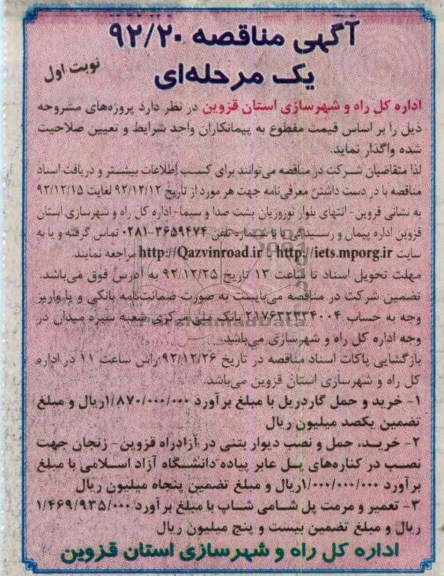 آگهی مناقصه ۹۲/۲۰
یک مرحله‌ای
نوبت اول
اداره کل راه و شهرسازی استان قزوین در نظر دارد پروژه‌های مشروحه
ذیل را بر اساس قیمت مقطوع به پیمانکاران واجد شرایط و تعیین صلاحیت
شده واگذار نماید.
لذا متقاضیان شرکت در مناقصه می‌توانند برای کسب اطلاعات بیشتر و دریافت اسناد
مناقصه با در دست داشتن معرفی‌نامه جهت هر مورد از تاریخ ۹۲/۱۲/۱۲ لغایت ۹۲/۱۲/۱۵
به نشانی قزوین- انتهای بلوار نوروزیان پشت صدا و سیما- اداره کل راه و شهرسازی استان
قزوین اداره پیمان و رسیدگی یا با شماره تلفن ۳۶۵۹۴۷۴-۰۲۸۱ تماس گرفته و یا به
سایت http://iets.mporg.ir یا http://Qazvinroad.ir مراجعه نمایند.
مهلت تحویل اسناد تا ساعت ۱۳ تاریخ ۹۲/۱۲/۲۵ به آدرس فوق می‌باشد.
تضمین شرکت در مناقصه می‌بایست به صورت ضمانت‌نامه بانکی و یا واریز
وجه به حساب ۲۱۷۶۳۲۳۳۴۰۰۴ بانک ملی مرکزی شعبه سبزه میدان در
وجه اداره کل راه و شهرسازی می‌باشد.
بازگشایی پاکات اسناد مناقصه در تاریخ ۹۲/۱۲/۲۶ راس ساعت ۱۱ در اداره
کل راه و شهرسازی استان قزوین می‌باشد.
۱- خرید و حمل گاردریل با مبلغ برآورد ۱/۸۷۰/۰۰۰/۰۰۰ریال و مبلغ
تضمین یکصد میلیون ریال
۲- خرید، حمل و نصب دیوار بتنی در آزادراه قزوین- زنجان جهت
نصب در کناره‌های پل عابر پیاده دانشگاه آزاد اسلامی با مبلغ
برآورد ۱/۰۰۰/۰۰۰/۰۰۰ریال و مبلغ تضمین پنجاه میلیون ریال
۳- تعمیر و مرمت پل شامی شاپ با مبلغ برآورد ۱/۴۶۹/۹۳۵/۰۰۰
ریال و مبلغ تضمین بیست و پنج میلیون ریال
اداره کل راه و شهرسازی استان قزوین